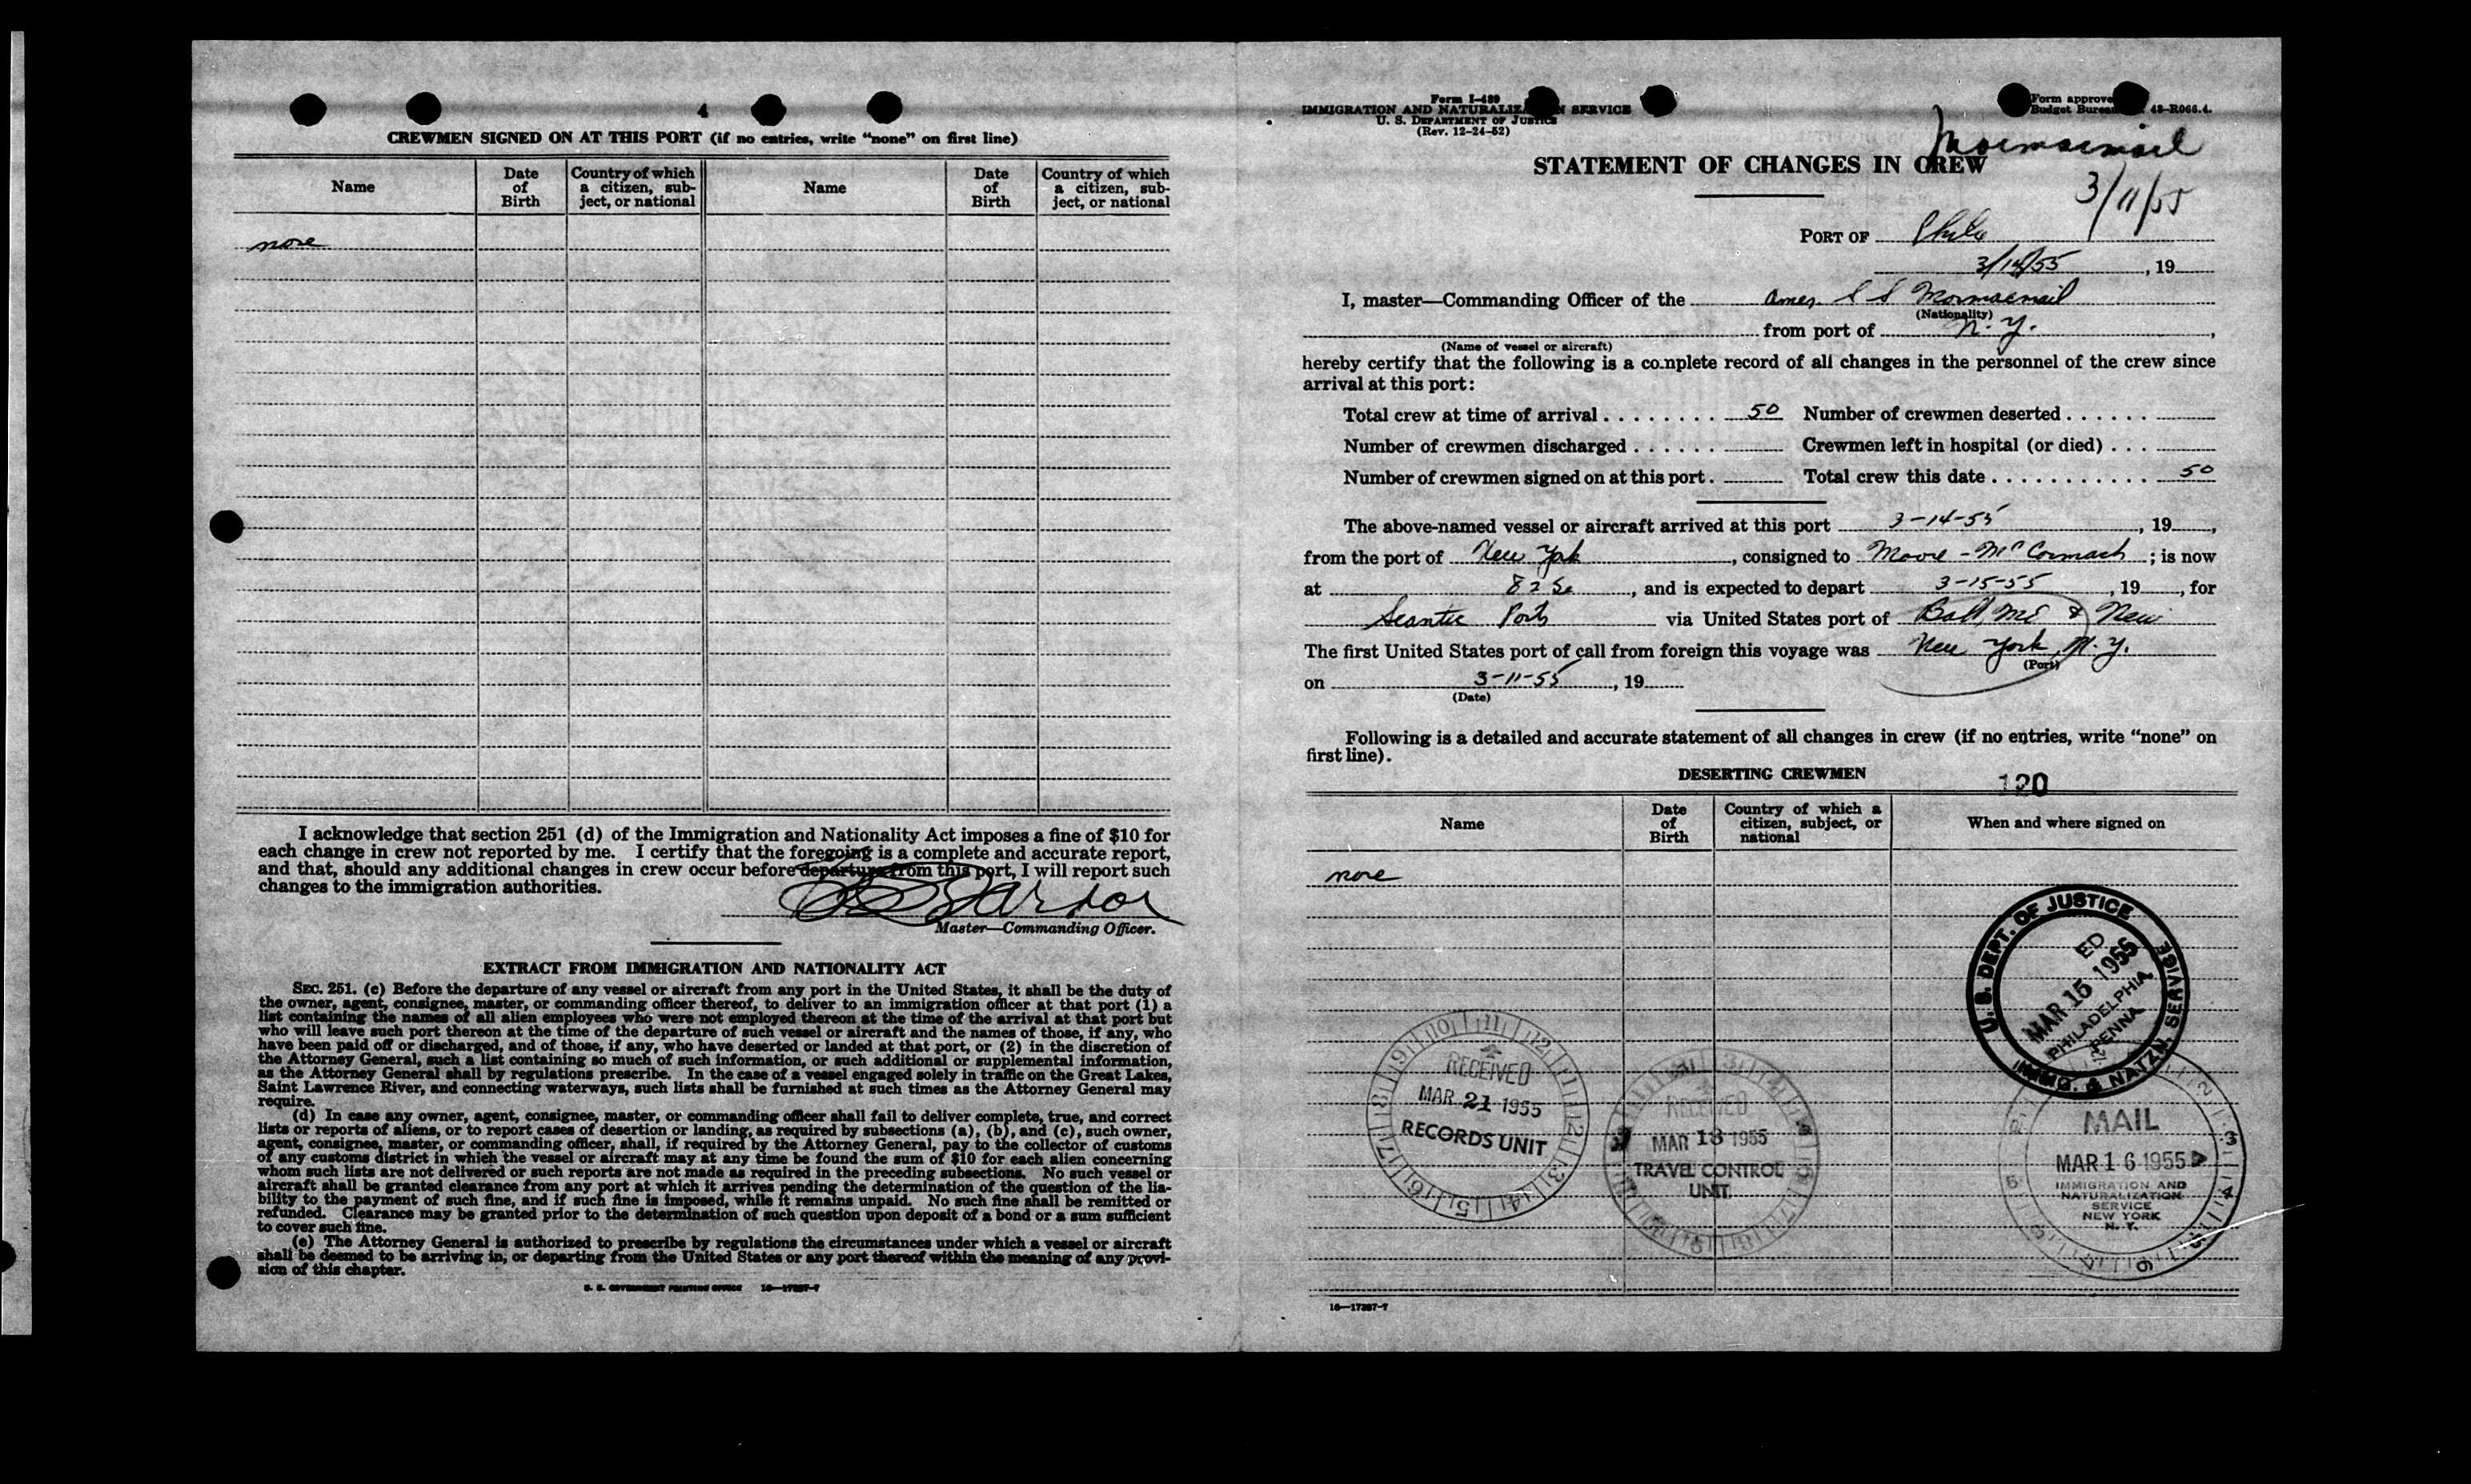 4
CREWMEN SIGNED ON AT THIS PORT (if no entries, write “none” on first line)
Name
Date of Birth
Country of which a citizen, sub-ject, or national
Name
Date of Birth
Country of which a citizen, sub-ject, or national
none
I acknowledge that section 251 (d) of the Immigration and Nationality Act imposes a fine of $10 for
each change in crew not reported by me. I certify that the foregoing is a complete and accurate report,
and that, should any additional changes in crew occur before departure from this port, I will report such
changes to the immigration authorities.
Master—Commanding Officer.
EXTRACT FROM IMMIGRATION AND NATIONALITY ACT
SEC. 251. (c) Before the departure of any vessel or aircraft from any port in the United States, it shall be the duty of
the owner, agent, consignee, master, or commanding officer thereof, to deliver to an immigration officer at that port (1) a
list containing the names of all alien employees who were not employed thereon at the time of the arrival at that port but
who will leave such port thereon at the time of the departure of such vessel or aircraft and the names of those, if any, who
have been paid off or discharged, and of those, if any, who have deserted or landed at that port, or (2) in the discretion of
the Attorney General, such a list containing so much of such information, or such additional or supplemental information,
as the Attorney General shall by regulations prescribe. In the case of a vessel engaged solely in traffic on the Great Lakes,
Saint Lawrence River, and connecting waterways, such lists shall be furnished at such times as the Attorney General may
require.
(d) In case any owner, agent, consignee, master, or commanding officer shall fail to deliver complete, true, and correct
lists or reports of aliens, or to report cases of desertion or landing, as required by subsections (a), (b), and (c), such owner,
agent, consignee, master, or commanding officer, shall, if required by the Attorney General, pay to the collector of customs
of any customs district in which the vessel or aircraft may at any time be found the sum of $10 for each alien concerning
whom such lists are not delivered or such reports are not made as required in the preceding subsections. No such vessel or
aircraft shall be granted clearance from any port at which it arrives pending the determination of the question of the lia-
bility to the payment of such fine, and if such fine is imposed, while it remains unpaid. No such fine shall be remitted or
refunded. Clearance may be granted prior to the determination of such question upon deposit of a bond or a sum sufficient
to cover such fine.
(e) The Attorney General is authorized to prescribe by regulations the circumstances under which a vessel or aircraft
shall be deemed to be arriving in, or departing from the United States or any port thereof within the meaning of any provi-
sion of this chapter.
U. S. GOVERNMENT PRINTING OFFICE 16—17287-7
Form I-489
IMMIGRATION AND NATURALIZATION SERVICE
U. S. DEPARTMENT OF JUSTICE
(Rev. 12-24-52)
Form approve
Budget Bureau 43-R066.4.
Mormacmail
3/11/55
STATEMENT OF CHANGES IN CREW
PORT OF Phila
3/14/55, 19
I, master—Commanding Officer of the Amer S S Mormacmail
(Nationality)
from port of N. Y.,
(Name of vessel or aircraft)
hereby certify that the following is a complete record of all changes in the personnel of the crew since
arrival at this port:
Total crew at time of arrival 50 Number of crewmen deserted
Number of crewmen discharged Crewmen left in hospital (or died)
Number of crewmen signed on at this port. Total crew this date 50
The above-named vessel or aircraft arrived at this port 3-14-55, 19,
from the port of New York, consigned to Moore-McCormack; is now
at 82 So, and is expected to depart 3-15-55, 19, for
Scantic Ports via United States port of Balt, Md & New
The first United States port of call from foreign this voyage was New York, N.Y.
(Port)
on 3-11-55, 19
(Date)
Following is a detailed and accurate statement of all changes in crew (if no entries, write “none” on
first line).
DESERTING CREWMEN
120
Name
Date of Birth
Country of which a citizen, subject, or national
When and where signed on
none
U. S. DEPT. OF JUSTICE
ED
MAR 15 1955
PHILADELPHIA
PENNA.
IMMG. & NATZN. SERVICE
RECEIVED
MAR 21 1955
RECORDS UNIT
RECEIVED
MAR 18 1955
TRAVEL CONTROL
UNIT
MAIL
MAR 16 1955
IMMIGRATION AND
NATURALIZATION
SERVICE
NEW YORK
N. Y.
16—17287-7